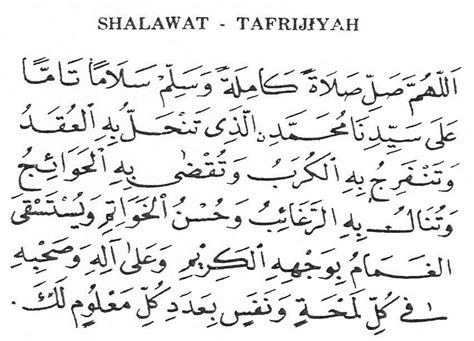 SHALAWAT - TAFRIJIYAH
اَللّٰهُمَّ صَلِّ صَلَاةً كَامِلَةً وَسَلِّمْ سَلَامًا تَامًّا
عَلَى سَيِّدِنَا مُحَمَّدِنِ الَّذِى تَنْحَلُّ بِهِ الْعُقَدُ
وَتَنْفَرِجُ بِهِ الْكُرَبُ وَتُقْضٰى بِهِ الْحَوَائِجُ
وَتُنَالُ بِهِ الرَّغَائِبُ وَحُسْنُ الْخَوَاتِمِ وَيُسْتَسْقَى
الْغَمَامُ بِوَجْهِهِ الْكَرِيْمِ وَعَلٰى آلِهِ وَصَحْبِهِ
فِى كُلِّ لَمْحَةٍ وَنَفَسٍ بِعَدَدِ كُلِّ مَعْلُوْمٍ لَكَ.